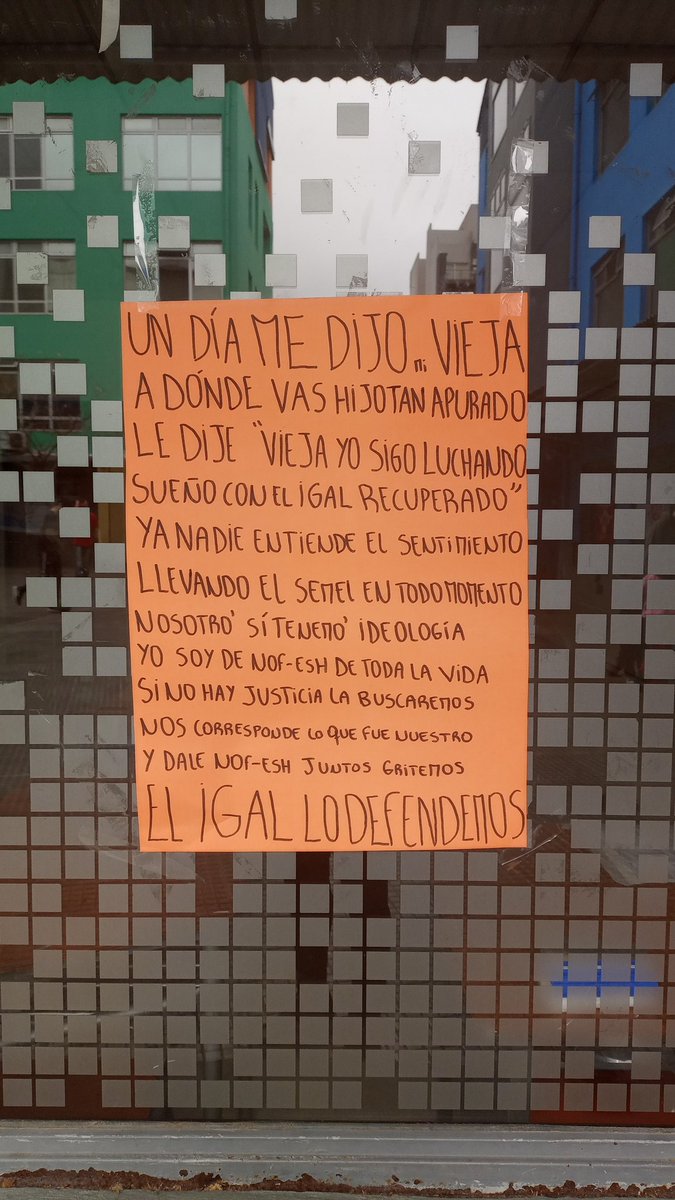 UN DÍA ME DIJO mi VIEJA
A DÓNDE VAS HIJO TAN APURADO
LE DIJE "VIEJA YO SIGO LUCHANDO
SUEÑO CON EL IGAL RECUPERADO"
YA NADIE ENTIENDE EL SENTIMIENTO
LLEVANDO EL SEMEL EN TODO MOMENTO
NOSOTRO' SÍ TENEMO' IDEOLOGÍA
YO SOY DE NOF-ESH DE TODA LA VIDA
SI NO HAY JUSTICIA LA BUSCAREMOS
NOS CORRESPONDE LO QUE FUE NUESTRO
Y DALE NOF-ESH JUNTOS GRITEMOS
EL IGAL LO DEFENDEMOS